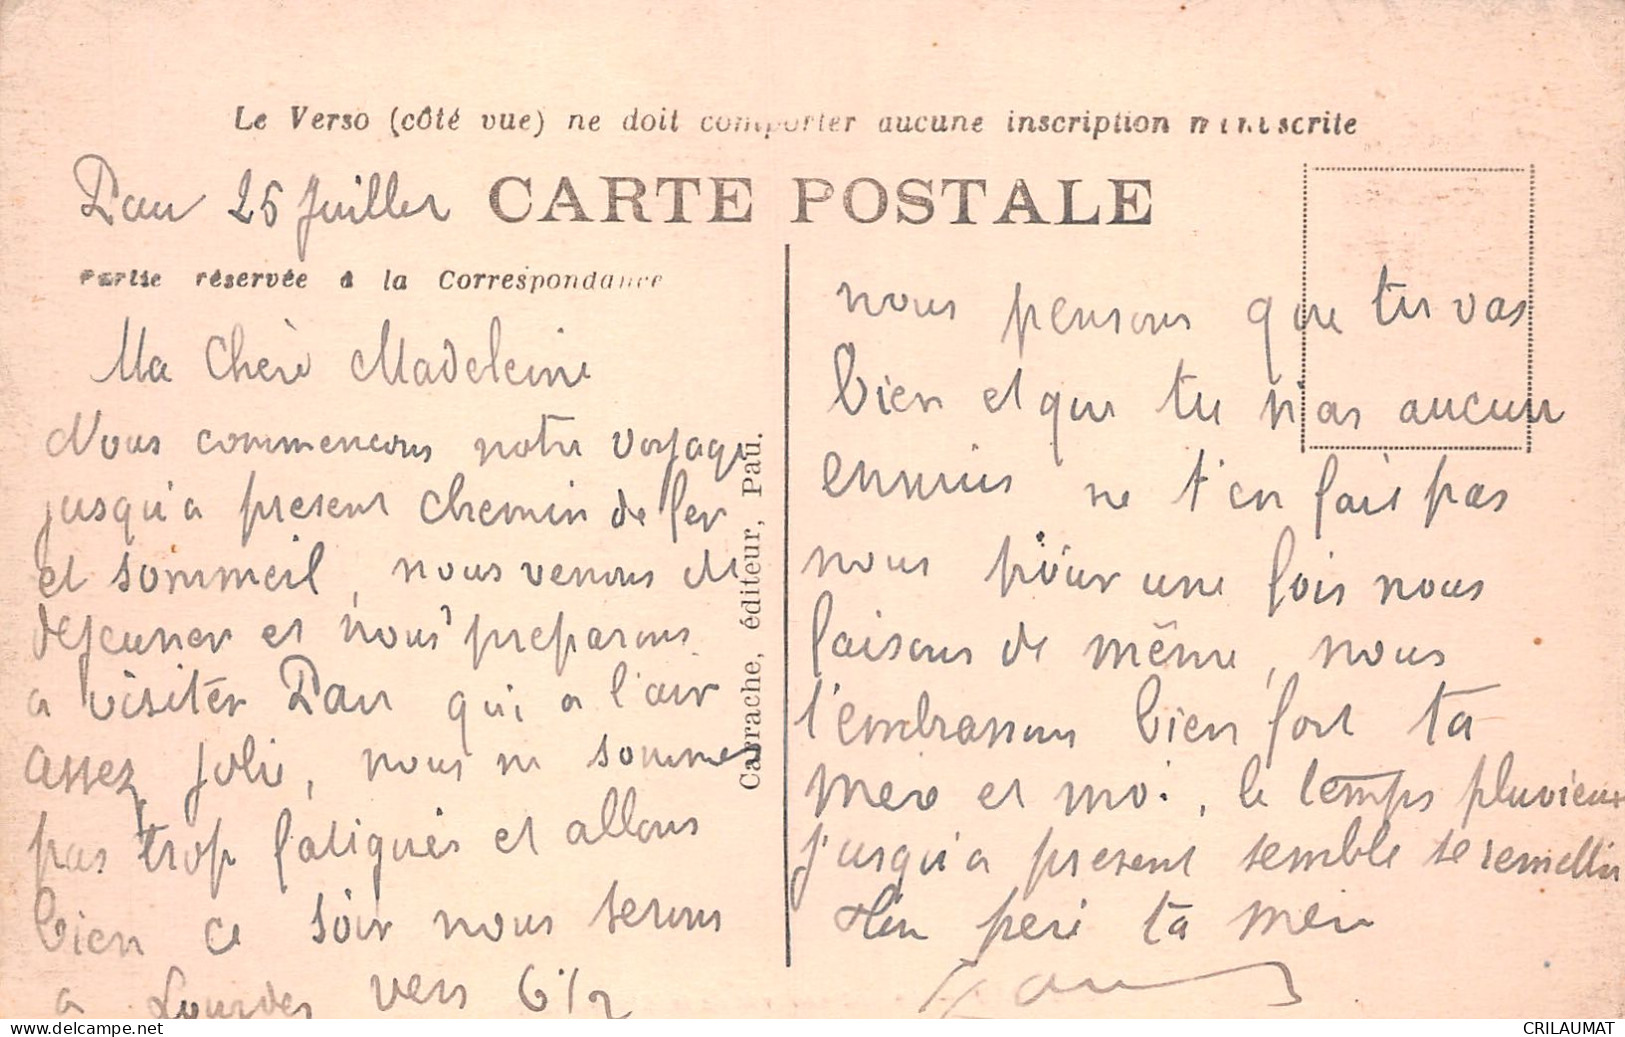 Le Verso (côté vue) ne doit comporter aucune inscription manuscrite
Pau 25 Juillet
CARTE POSTALE
Partie réservée à la Correspondance
Ma Chère Madeleine
Nous commencons notre voyage
jusqu'a present chemin de fer
et sommeil, nous venons de
dejeuner et nous preparons
a visiter Pau qui a l'air
assez jolie, nous ne sommes
pas trop fatigués et allons
bien ce soir nous serons
a Lourdes vers 6 1/2
Carrache, éditeur, Pau.
nous pensons que tu vas
bien et que tu n'as aucun
ennuis ne t'en fait pas
nous pour une fois nous
faisons de même, nous
t'embrassons bien fort ta
mere et moi, le temps pluvieux
jusqu'a present semble se remettre
ton pere ta mere
CRILAUMAT